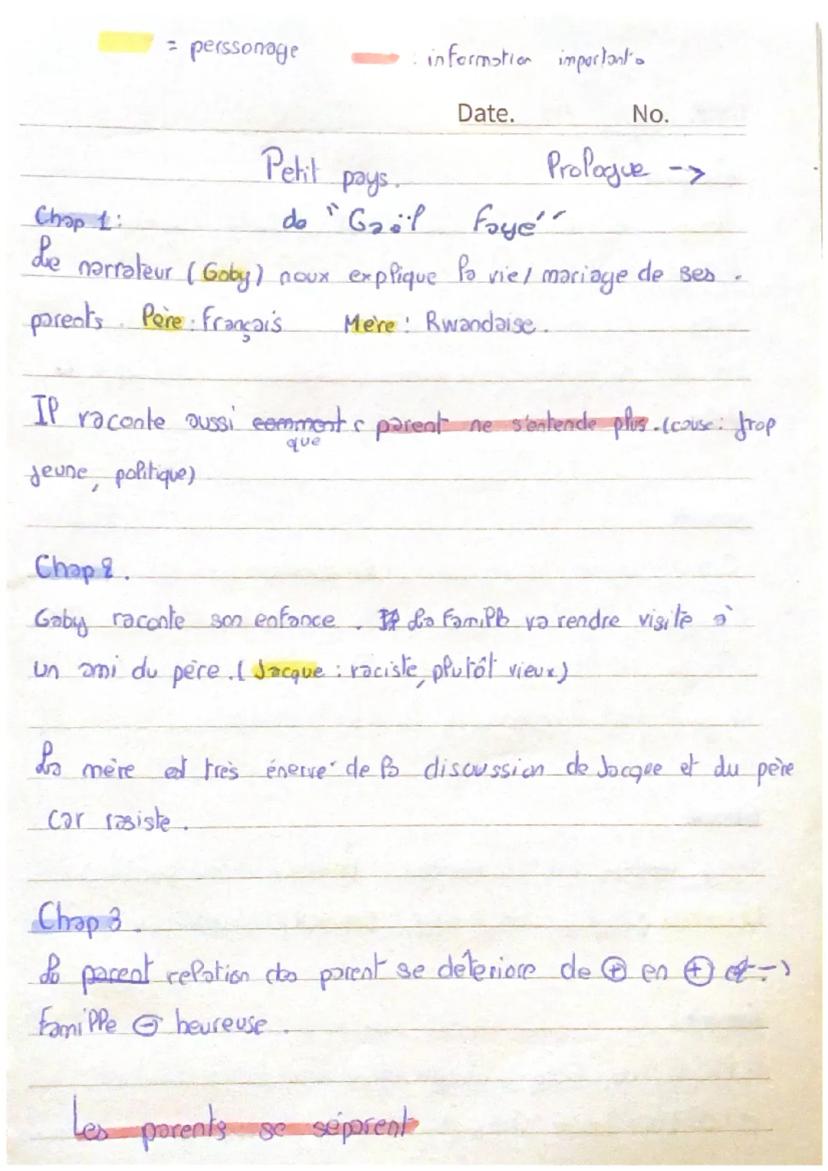 = perssonage : information important
Date. No.
Petit pays. Prologue ->
Chap 1: de "Gaël Faye"
Le narrateur (Gaby) noux explique la vie/ mariage de ses
parents. Père : Français Mère : Rwandaise.
Il raconte aussi comment parent ne s'entende plus. (cause: trop
que
jeune, politique)
Chap 2.
Gaby raconte son enfance. Il La famille va rendre visite à
un ami du père. ( Jacque : raciste, plutôt vieux)
La mère est très énervé de la discussion de Jacque et du père
car rasiste.
Chap 3.
La parent relation des parent se déteriore de ⊕ en ⊕ et ->
famille ⊖ heureuse.
Les parents se séparent